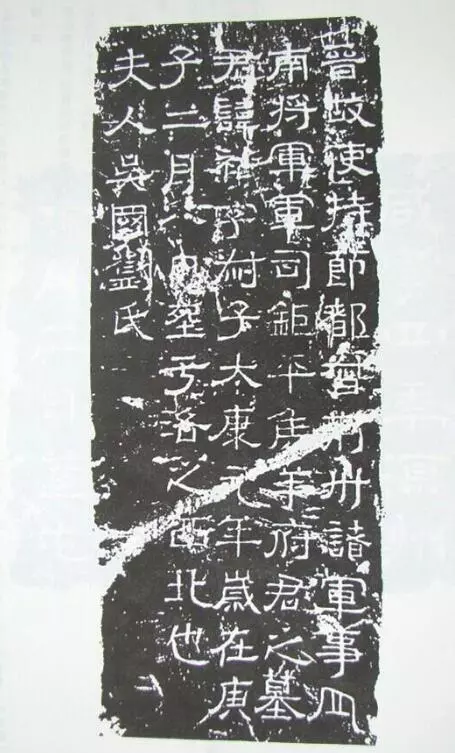 晉故使持節都督荊州諸軍事平
南將軍軍司鉅平侯羊府君之墓
君諱祜字叔子太康元年歲在庚
子二月塋于洛之西北也
夫人吳國氏